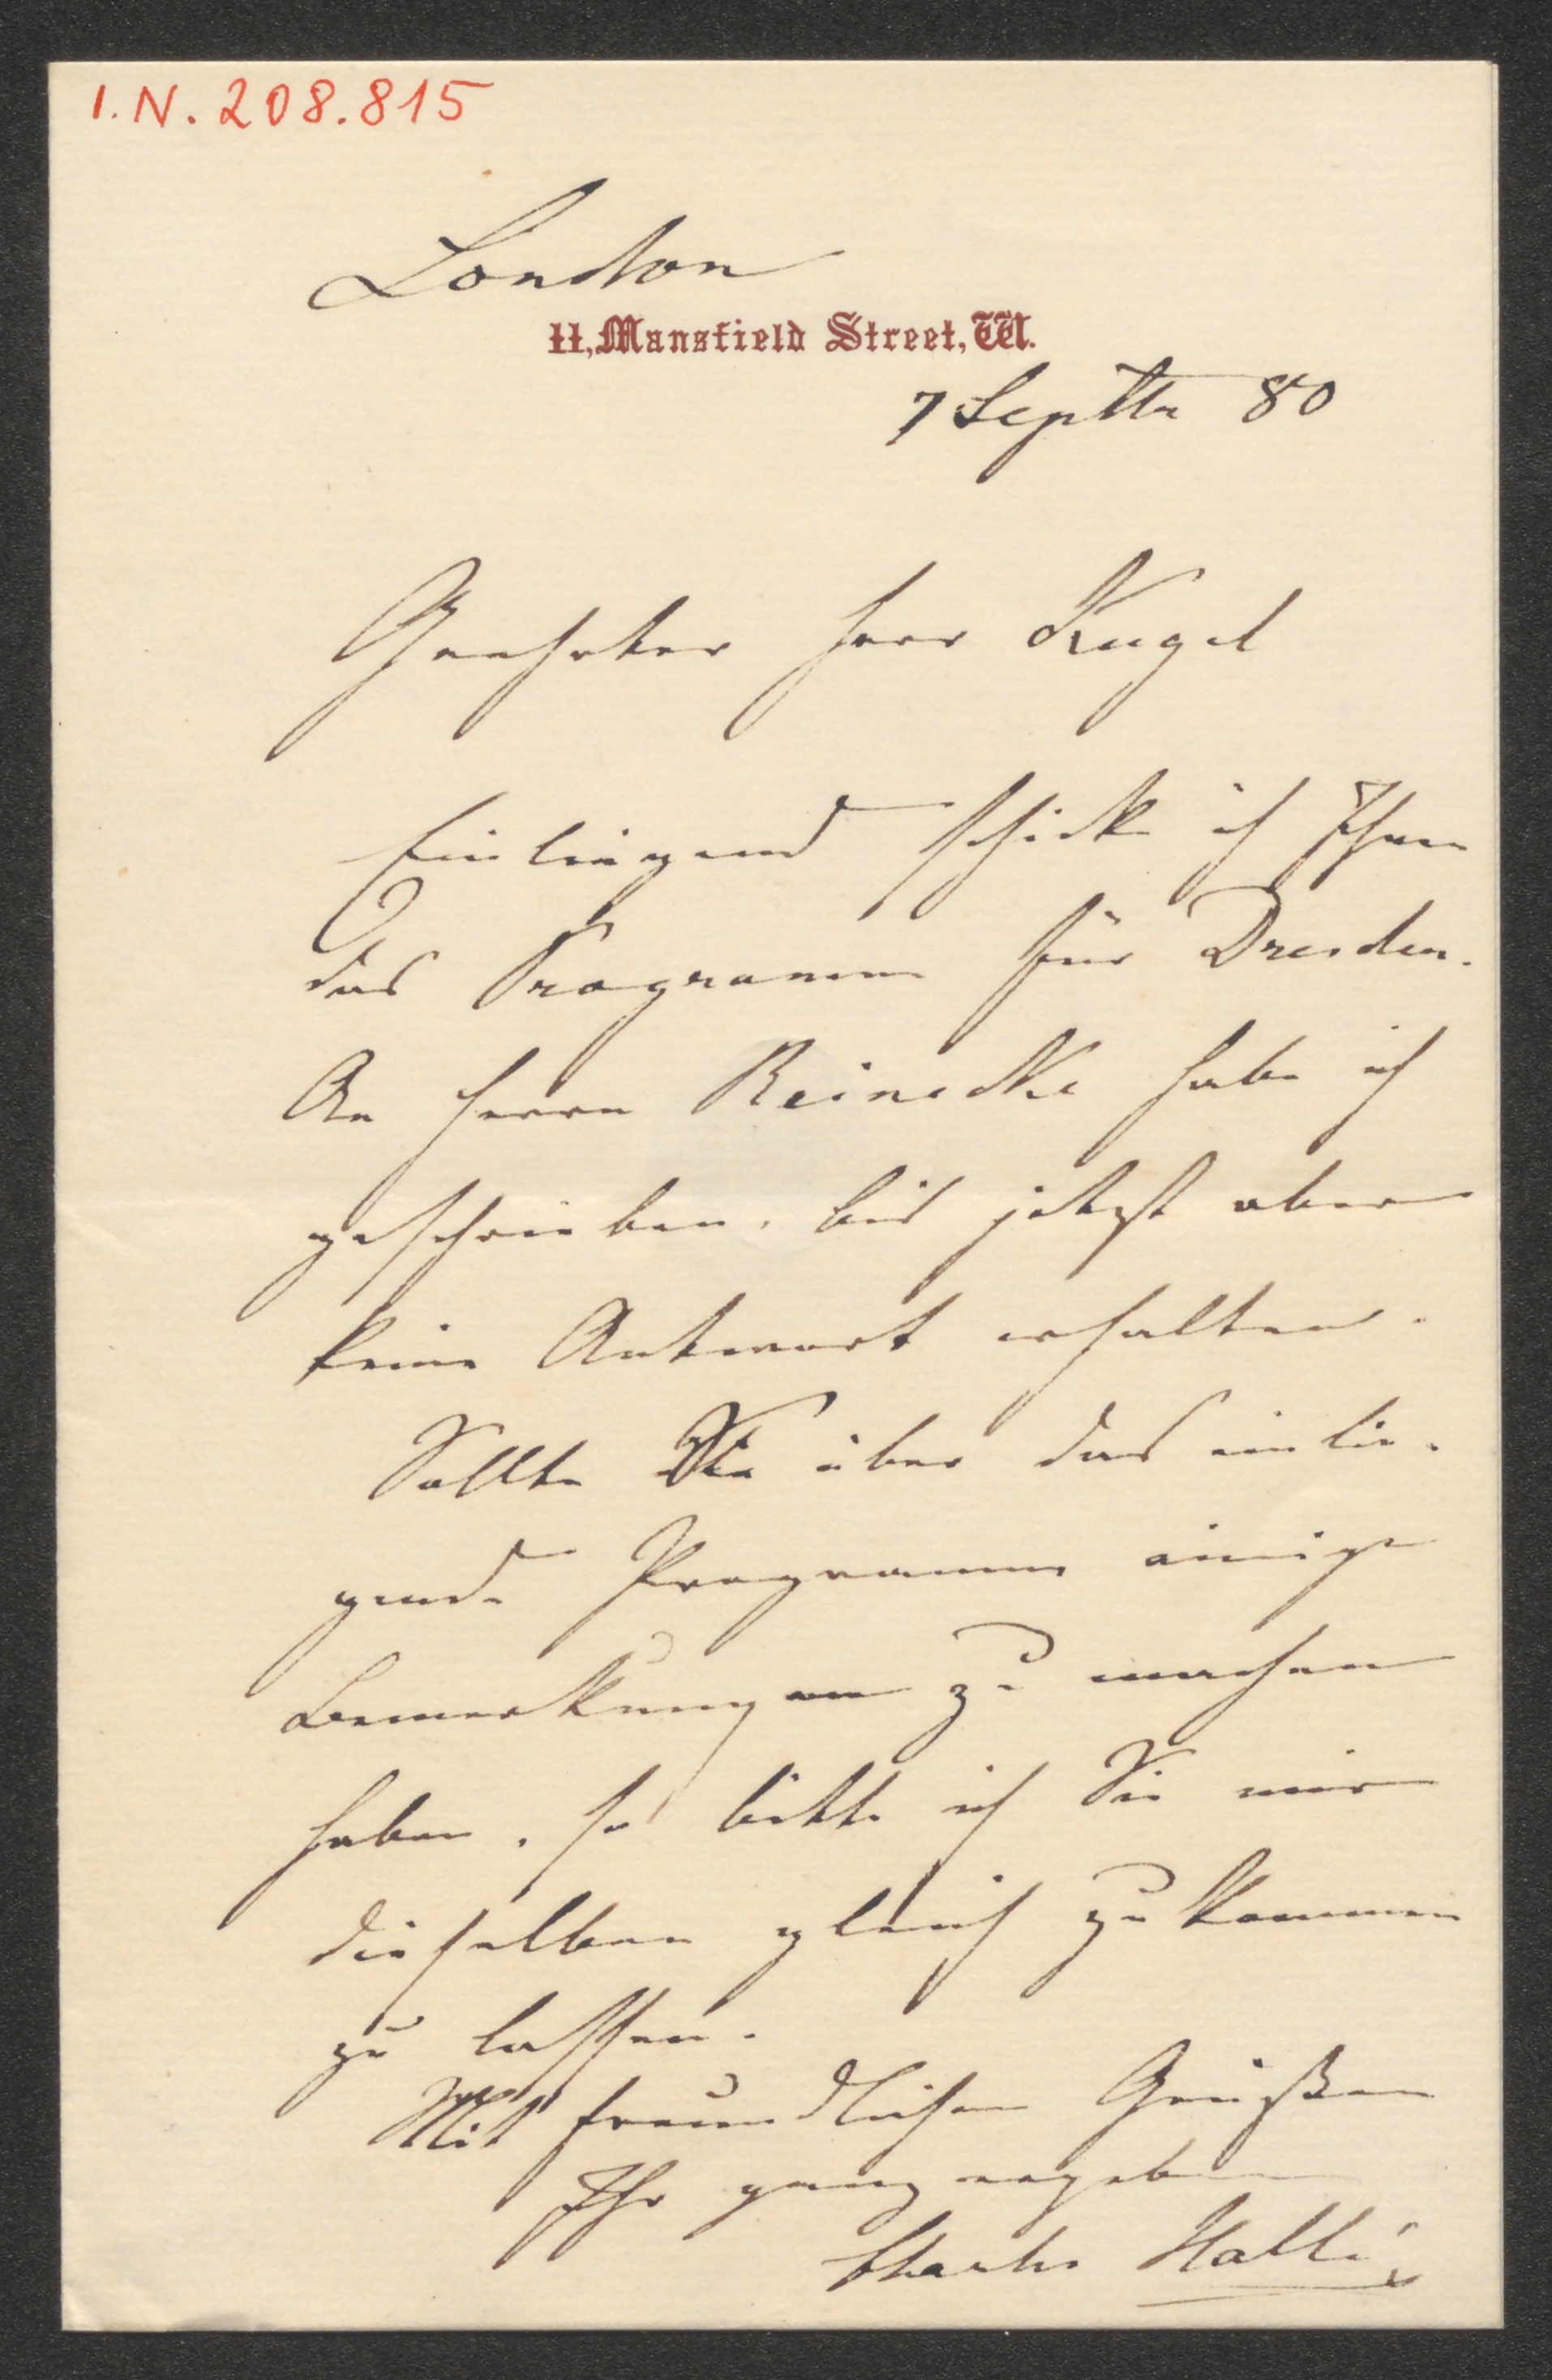 I.N. 208.815
London
11, Mansfield Street, W.
7 Septbr 80
Geehrter Herr Kugel
Einliegend schicke ich Ihnen
das Programm für Dresden.
An Herrn Reinecke habe ich
geschrieben, bis jetzt aber
keine Antwort erhalten.
Sollten Sie über das einlie-
gende Programm einige
Bemerkungen zu machen
haben, so bitte ich Sie mir
dieselben gleich zukommen
zu lassen.
Mit freundlichen Grüßen
Ihr ganz ergebener
Charles Hallé